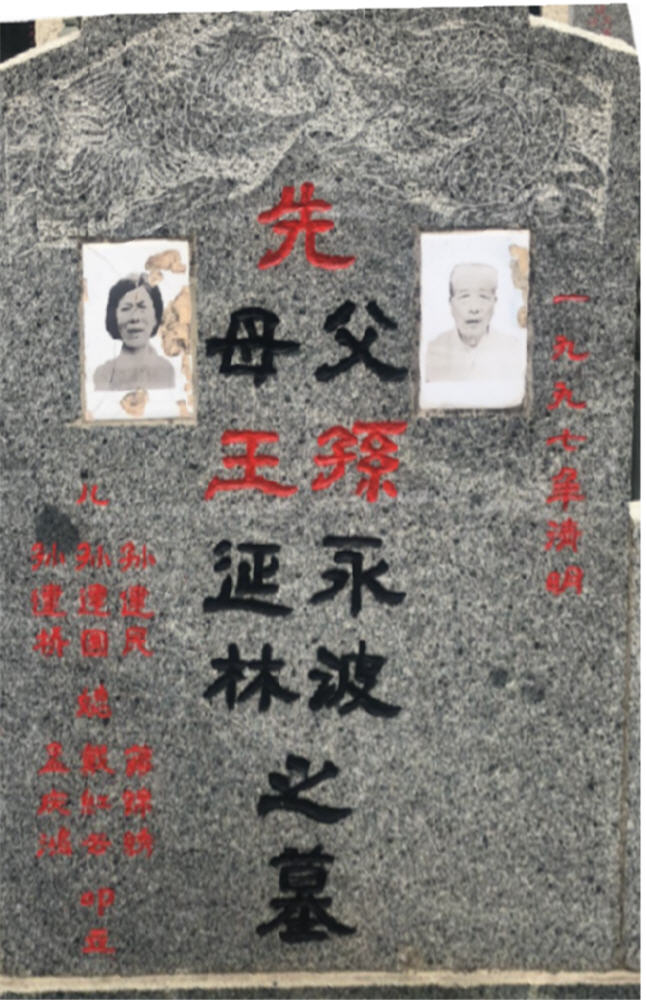 一九九七年清明
先
父 孫永波
母 王延林
之墓
儿
孙建民
孙建国
孙建桥
媳
戴红
孟庆
叩立